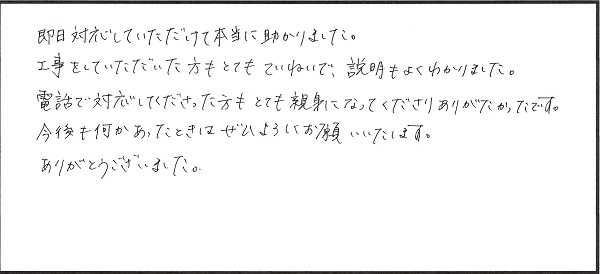 即日対応していただけて本当に助かりました。
工事をしていただいた方もとてもていねいで、説明もよくわかりました。
電話で対応してくださった方もとても親身になってくださりありがたかったです。
今後も何かあったときはぜひよろしくお願いいたします。
ありがとうございました。